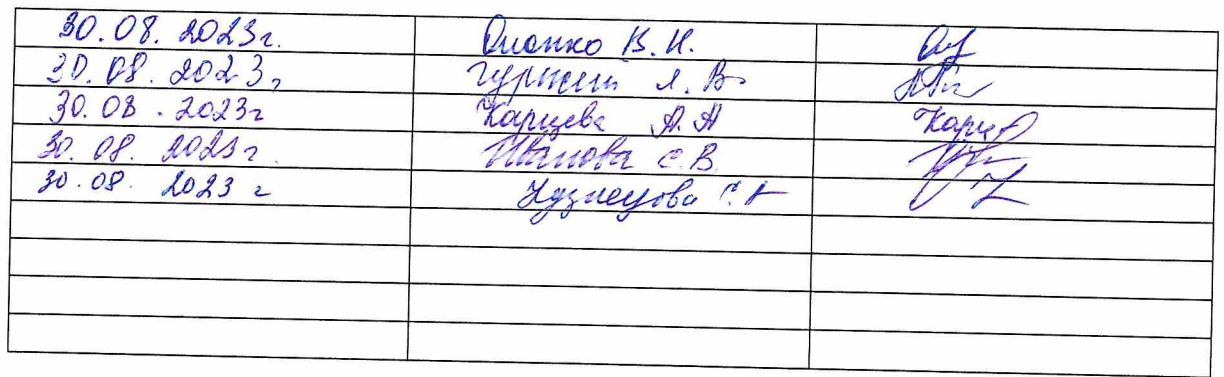 30.08.2023г. Опонко В.И.
30.08.2023г Гуржий Л.В.
30.08.2023г Карцева А.А Карце
30.08.2023г. Иванова С.В.
30.08.2023г Кузнецова